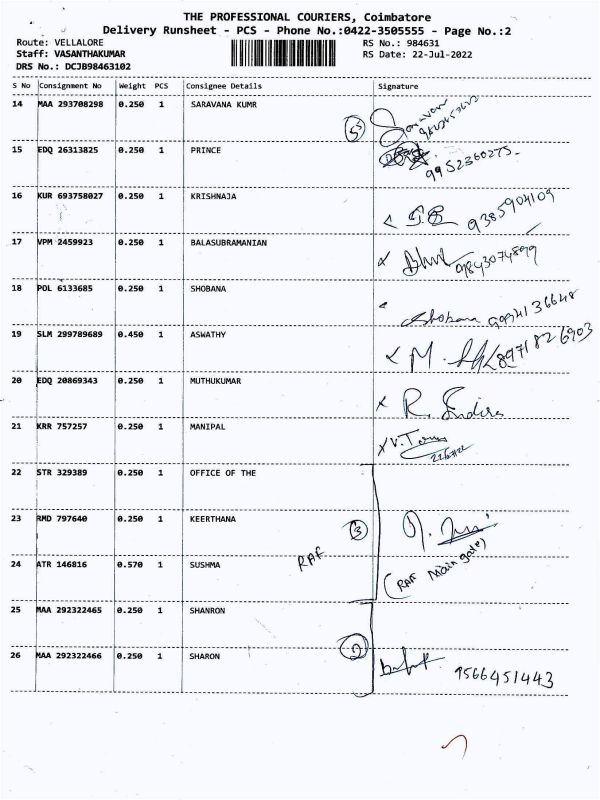 THE PROFESSIONAL COURIERS, Coimbatore
Delivery Runsheet - PCS - Phone No.:0422-3505555 - Page No.:2
Route: VELLALORE RS No.: 984631
Staff: VASANTHAKUMAR RS Date: 22-Jul-2022
DRS No.: DCJB98463102
S No Consignment No Weight PCS Consignee Details Signature
14 MAA 293708298 0.250 1 SARAVANA KUMR 5 Saravan
15 EDQ 26313825 0.250 1 PRINCE 9952360275
16 KUR 693758027 0.250 1 KRISHNAJA 9385904109
17 VPM 2459923 0.250 1 BALASUBRAMANIAN 9843074899
18 POL 6133685 0.250 1 SHOBANA Shobana 9994136648
19 SLM 299789689 0.450 1 ASWATHY M. 8971826903
20 EDQ 20869343 0.250 1 MUTHUKUMAR R. Indira
21 KRR 757257 0.250 1 MANIPAL
22 STR 329389 0.250 1 OFFICE OF THE
23 RMD 797640 0.250 1 KEERTHANA 3
24 ATR 146816 0.570 1 SUSHMA RAF (RAF Main gate)
25 MAA 292322465 0.250 1 SHANRON
26 MAA 292322466 0.250 1 SHARON 2 9566451443